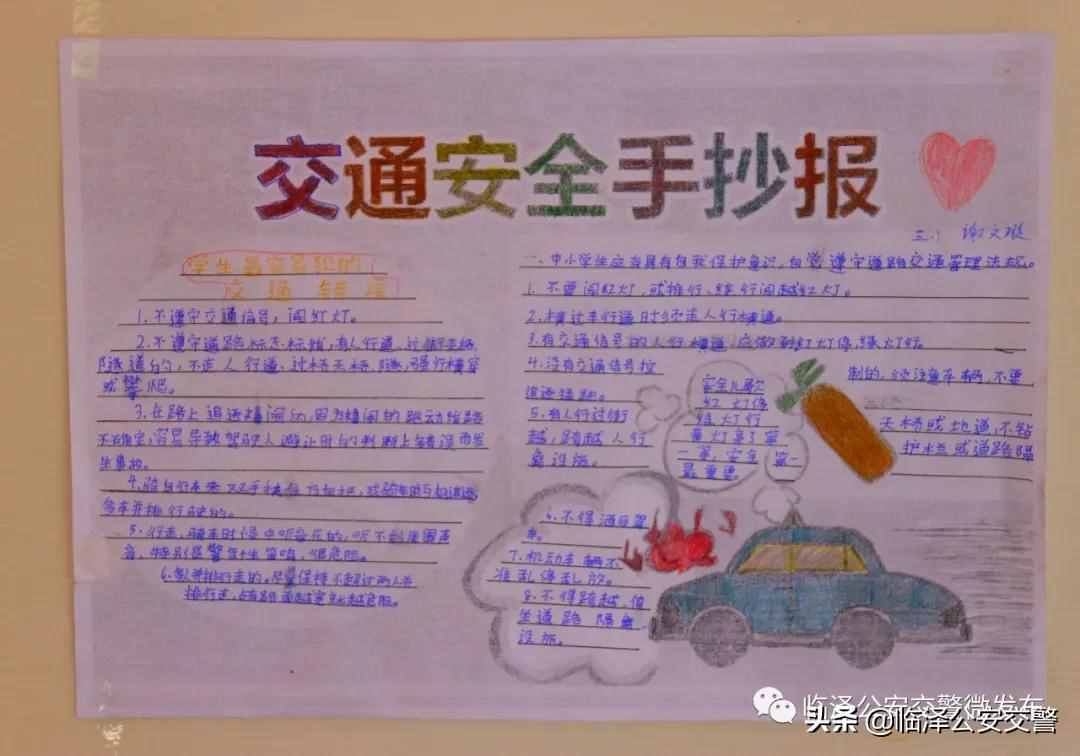 交通安全手抄报
三.1 谢文璇
学生最容易犯的
交通错误
1.不遵守交通信号,闯灯灯。
2.不遵守道路标志标线,有人行道、过街天桥、
隧道的,不走人行道、过街天桥、隧,强行横穿
或攀爬。
3.在路上追逐嬉闹的,因为嬉闹的跑动给路
不确定,容易导致驾驶人避让时的判断上错误而发
生事故。
4.骑自行车来双手
多车并排行驶的。
5.行走、骑车时候中听音乐的,听不到周围声
音,特别是警告性笛鸣,很危险。
6.数并排行走的。尽量保持不超过两人并
排行走,
一、中小学生应当具有自我保护意识,自觉遵守道路交通管理法规。
1.不要闯红灯,或推行、绕行闯越红灯。
2.横过车行道时须走人行横道。
3.有交通信号的人行横道,应做到红灯停,绿灯行。
4.没有交通信号控制的,须注意车辆,不要
追逐猜跑。
5.有人行过街天桥或地道,不钻
越、跨越人行护栏或道路隔
离设施。
安全儿歌
红灯停
绿灯行
黄灯亮了等
一等,安全第一
最重要
6.不得
7.机动车辆不
准乱停乱放。
8.不得跨越、倚
坐道路隔离
设施。
临泽公安交警微发布
头条 @临泽公安交警